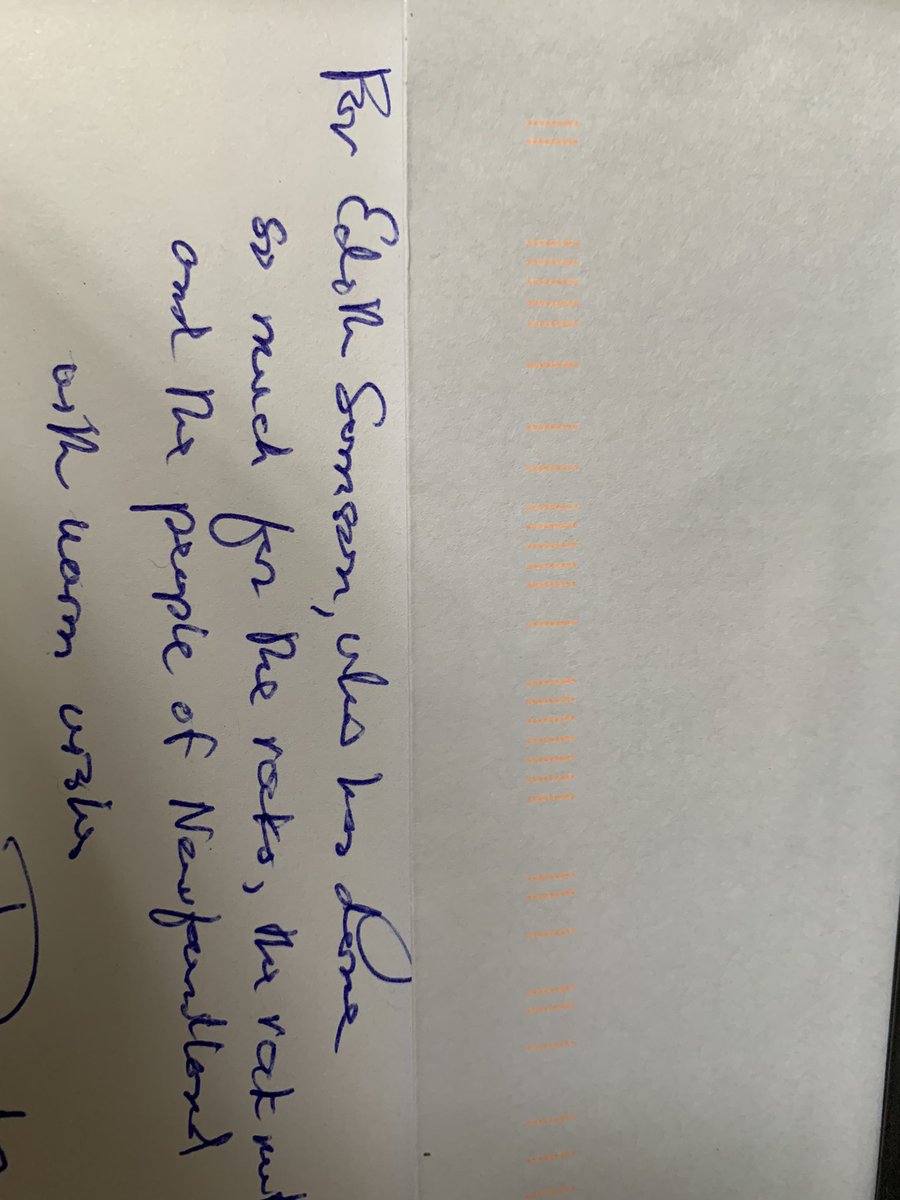 For Edith Samson, who has done
so much for the rocks, the rock
and the people of Newfoundland
with warm wishes